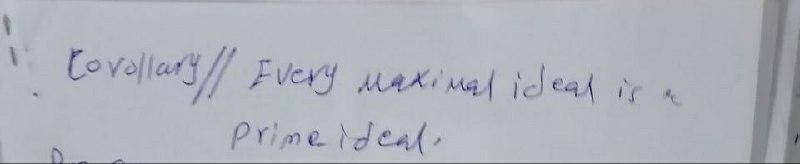 Corollary// Every maximal ideal is a
prime ideal.